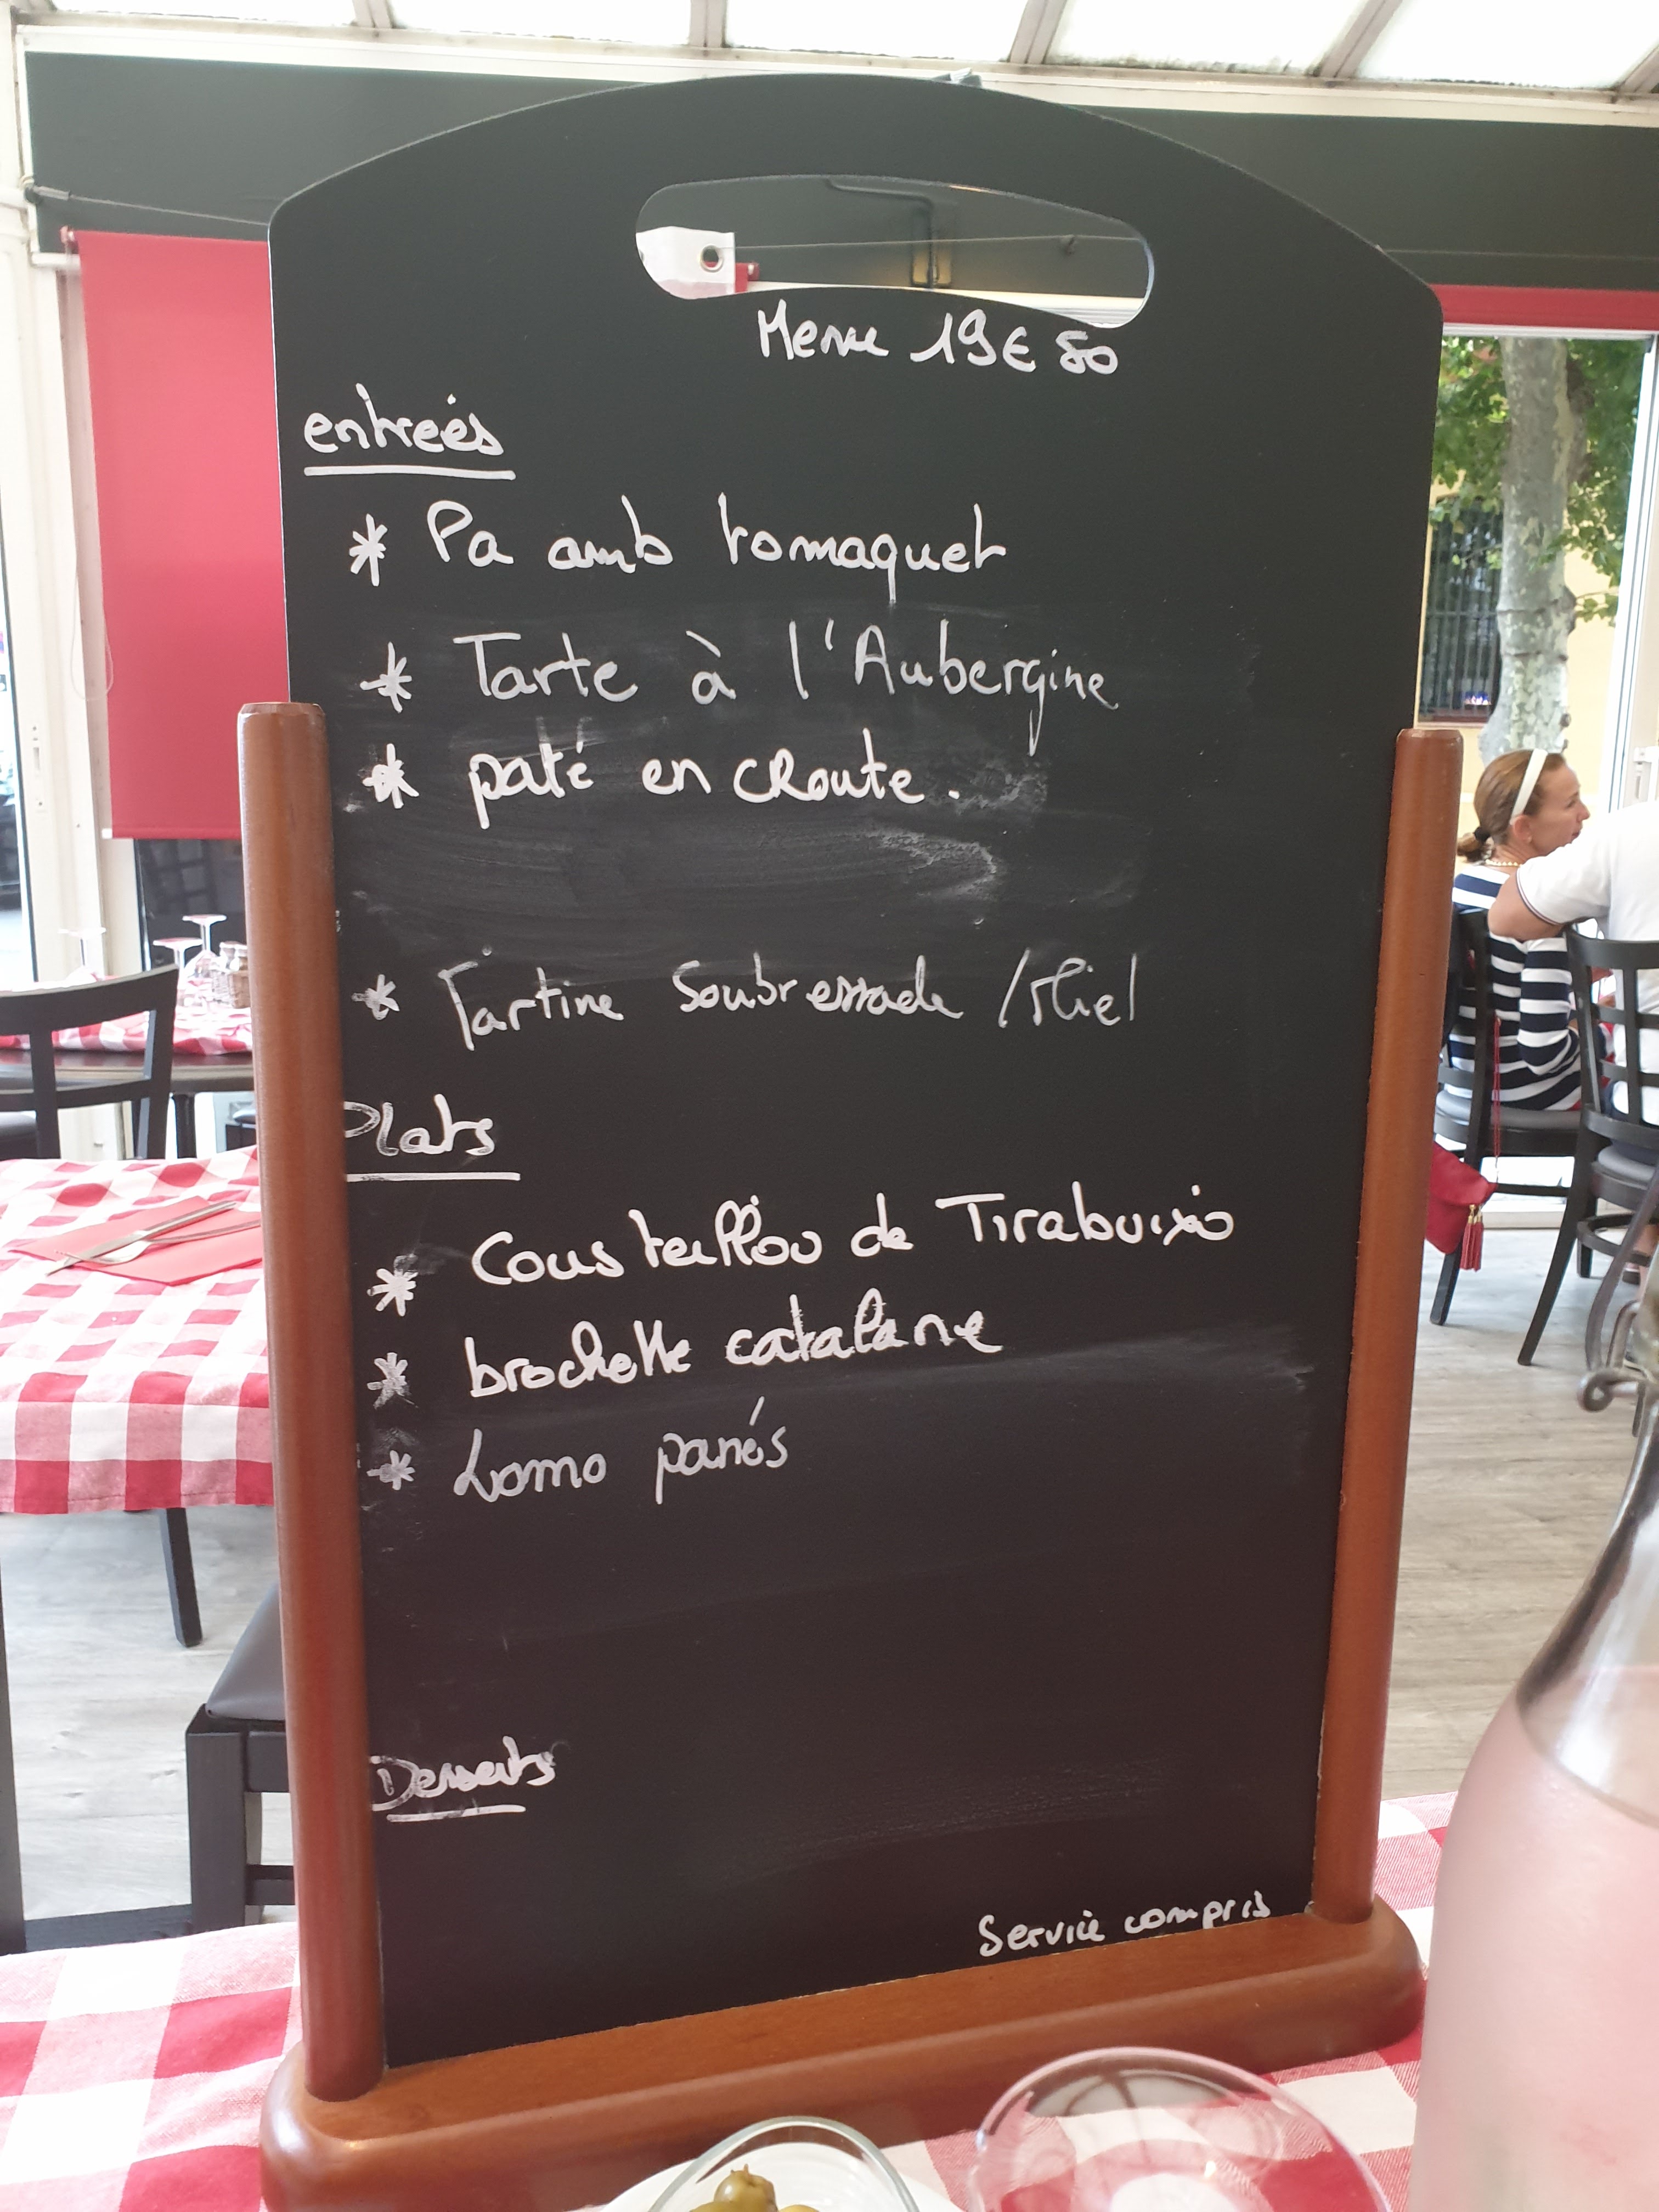 Menu 19€80
entreés
* Pa amb tomaquet
* Tarte à l'Aubergine
* paté en croute.
* Tartine Soubressade / Miel
Plats
* Cousteillou de Tirabuixo
* brochette catalane
* Lomo panés
Desserts
Service compris